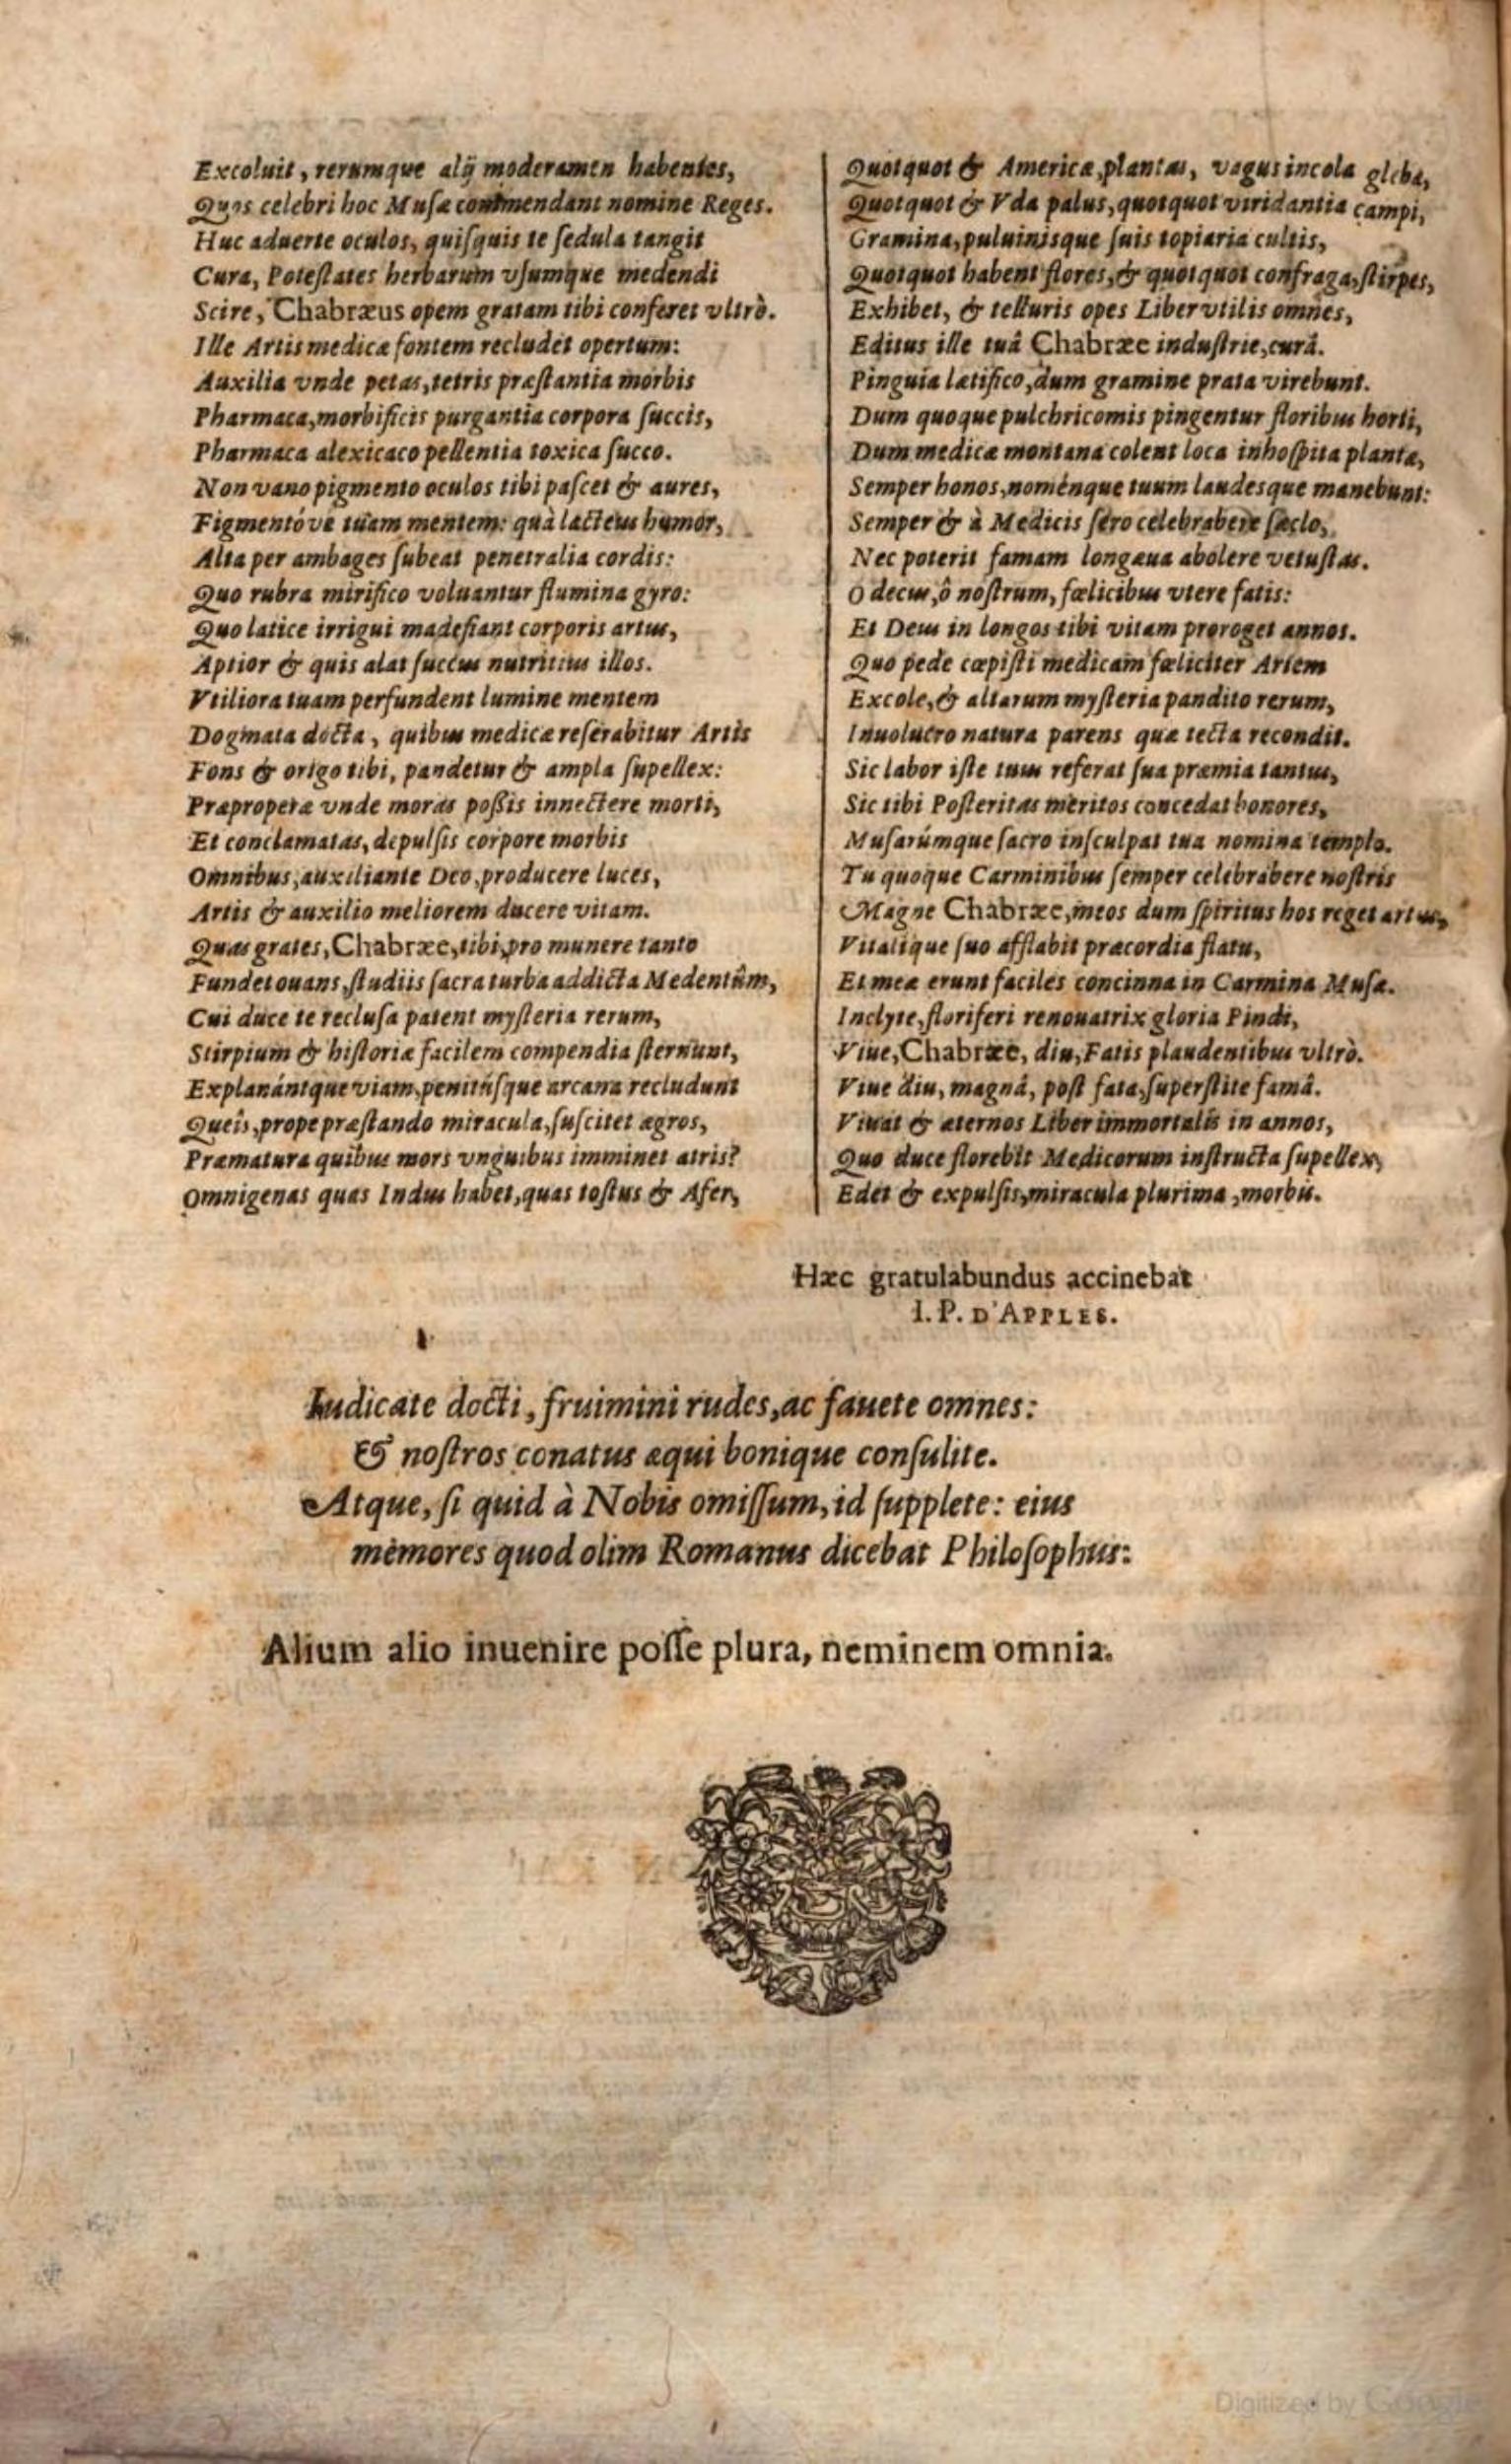 Excoluit, rerumque alij moderamen habentes,
Quos celebri hoc Musæ commendant nomine Reges.
Huc aduerte oculos, quiſquis te ſedula tangit
Cura, Poteſtates herbarum vſumque medendi
Scire, Chabræus opem gratam tibi conferet vltrò.
Ille Artis medicæ fontem recludet opertum:
Auxilia vnde petas, tetris præſtantia morbis
Pharmaca, morbificis purgantia corpora ſuccis,
Pharmaca alexicaco pellentia toxica ſucco.
Non vano pigmento oculos tibi paſcet & aures,
Figmentóve tuam mentem: quà lacteus humor,
Alta per ambages ſubeat penetralia cordis:
Quo rubra mirifico voluantur flumina gyro:
Quo latice irrigui madefiant corporis artus,
Aptior & quis alat ſuccus nutritius illos.
Vtiliora tuam perfundent lumine mentem
Dogmata docta, quibus medicæ reſerabitur Artis
Fons & origo tibi, pandetur & ampla ſupellex:
Præproperæ vnde moras poſsis innectere morti,
Et conclamatas, depulſis corpore morbis
Omnibus, auxiliante Deo, producere luces,
Artis & auxilio meliorem ducere vitam.
Quas grates, Chabræe, tibi, pro munere tanto
Fundet ouans, ſtudiis ſacra turba addicta Medentûm,
Cui duce te recluſa patent myſteria rerum,
Stirpium & hiſtoriæ facilem compendia ſternunt,
Explanántque viam, penitúſque arcana recludunt
Queîs, prope præſtando miracula, ſuſcitet ægros,
Præmatura quibus mors vnguibus imminet atris?
Omnigenas quas Indus habet, quas toſtus & Afer,
Quotquot & Americæ, plantas, vagus incola glebæ,
Quotquot & Vda palus, quotquot viridantia campi,
Gramina, puluinisque ſuis topiaria cultis,
Quotquot habent flores, & quotquot confraga, ſtirpes,
Exhibet, & telluris opes Liber vtilis omnes,
Editus ille tuâ Chabræe induſtrie, curâ.
Pinguia lætifico, dum gramine prata virebunt.
Dum quoque pulchricomis pingentur floribus horti,
Dum medicæ montana colent loca inhoſpita plantæ,
Semper honos, noménque tuum laudesque manebunt:
Semper & à Medicis ſero celebrabere ſæclo,
Nec poterit famam longæua abolere vetuſtas.
O decus, ô noſtrum, fœlicibus vtere fatis:
Et Deus in longos tibi vitam proroget annos.
Quo pede cœpiſti medicam fœliciter Artem
Excole, & altarum myſteria pandito rerum,
Inuolucro natura parens quæ tecta recondit.
Sic labor iſte tuus referat ſua præmia tantus,
Sic tibi Poſteritas meritos concedat honores,
Muſarúmque ſacro inſculpat tua nomina templo.
Tu quoque Carminibus ſemper celebrabere noſtris
Magne Chabræe, meos dum ſpiritus hos reget artus,
Vitalique ſuo afflabit præcordia flatu,
Et meæ erunt faciles concinna in Carmina Muſæ.
Inclyte, floriferi renouatrix gloria Pindi,
Viue, Chabræe, diu, Fatis plaudentibus vltrò.
Viue diu, magnâ, poſt fata, ſuperſtite famâ.
Viuat & æternos Liber immortalis in annos,
Quo duce florebit Medicorum inſtructa ſupellex,
Edet & expulſis, miracula plurima, morbis.
Hæc gratulabundus accinebat
I. P. D'APPLES.
Iudicate docti, fruimini rudes, ac fauete omnes:
& noſtros conatus æqui bonique conſulite.
Atque, ſi quid à Nobis omiſſum, id ſupplete: eius
memores quod olim Romanus dicebat Philoſophus:
Alium alio inuenire poſſe plura, neminem omnia.
Digitized by Google